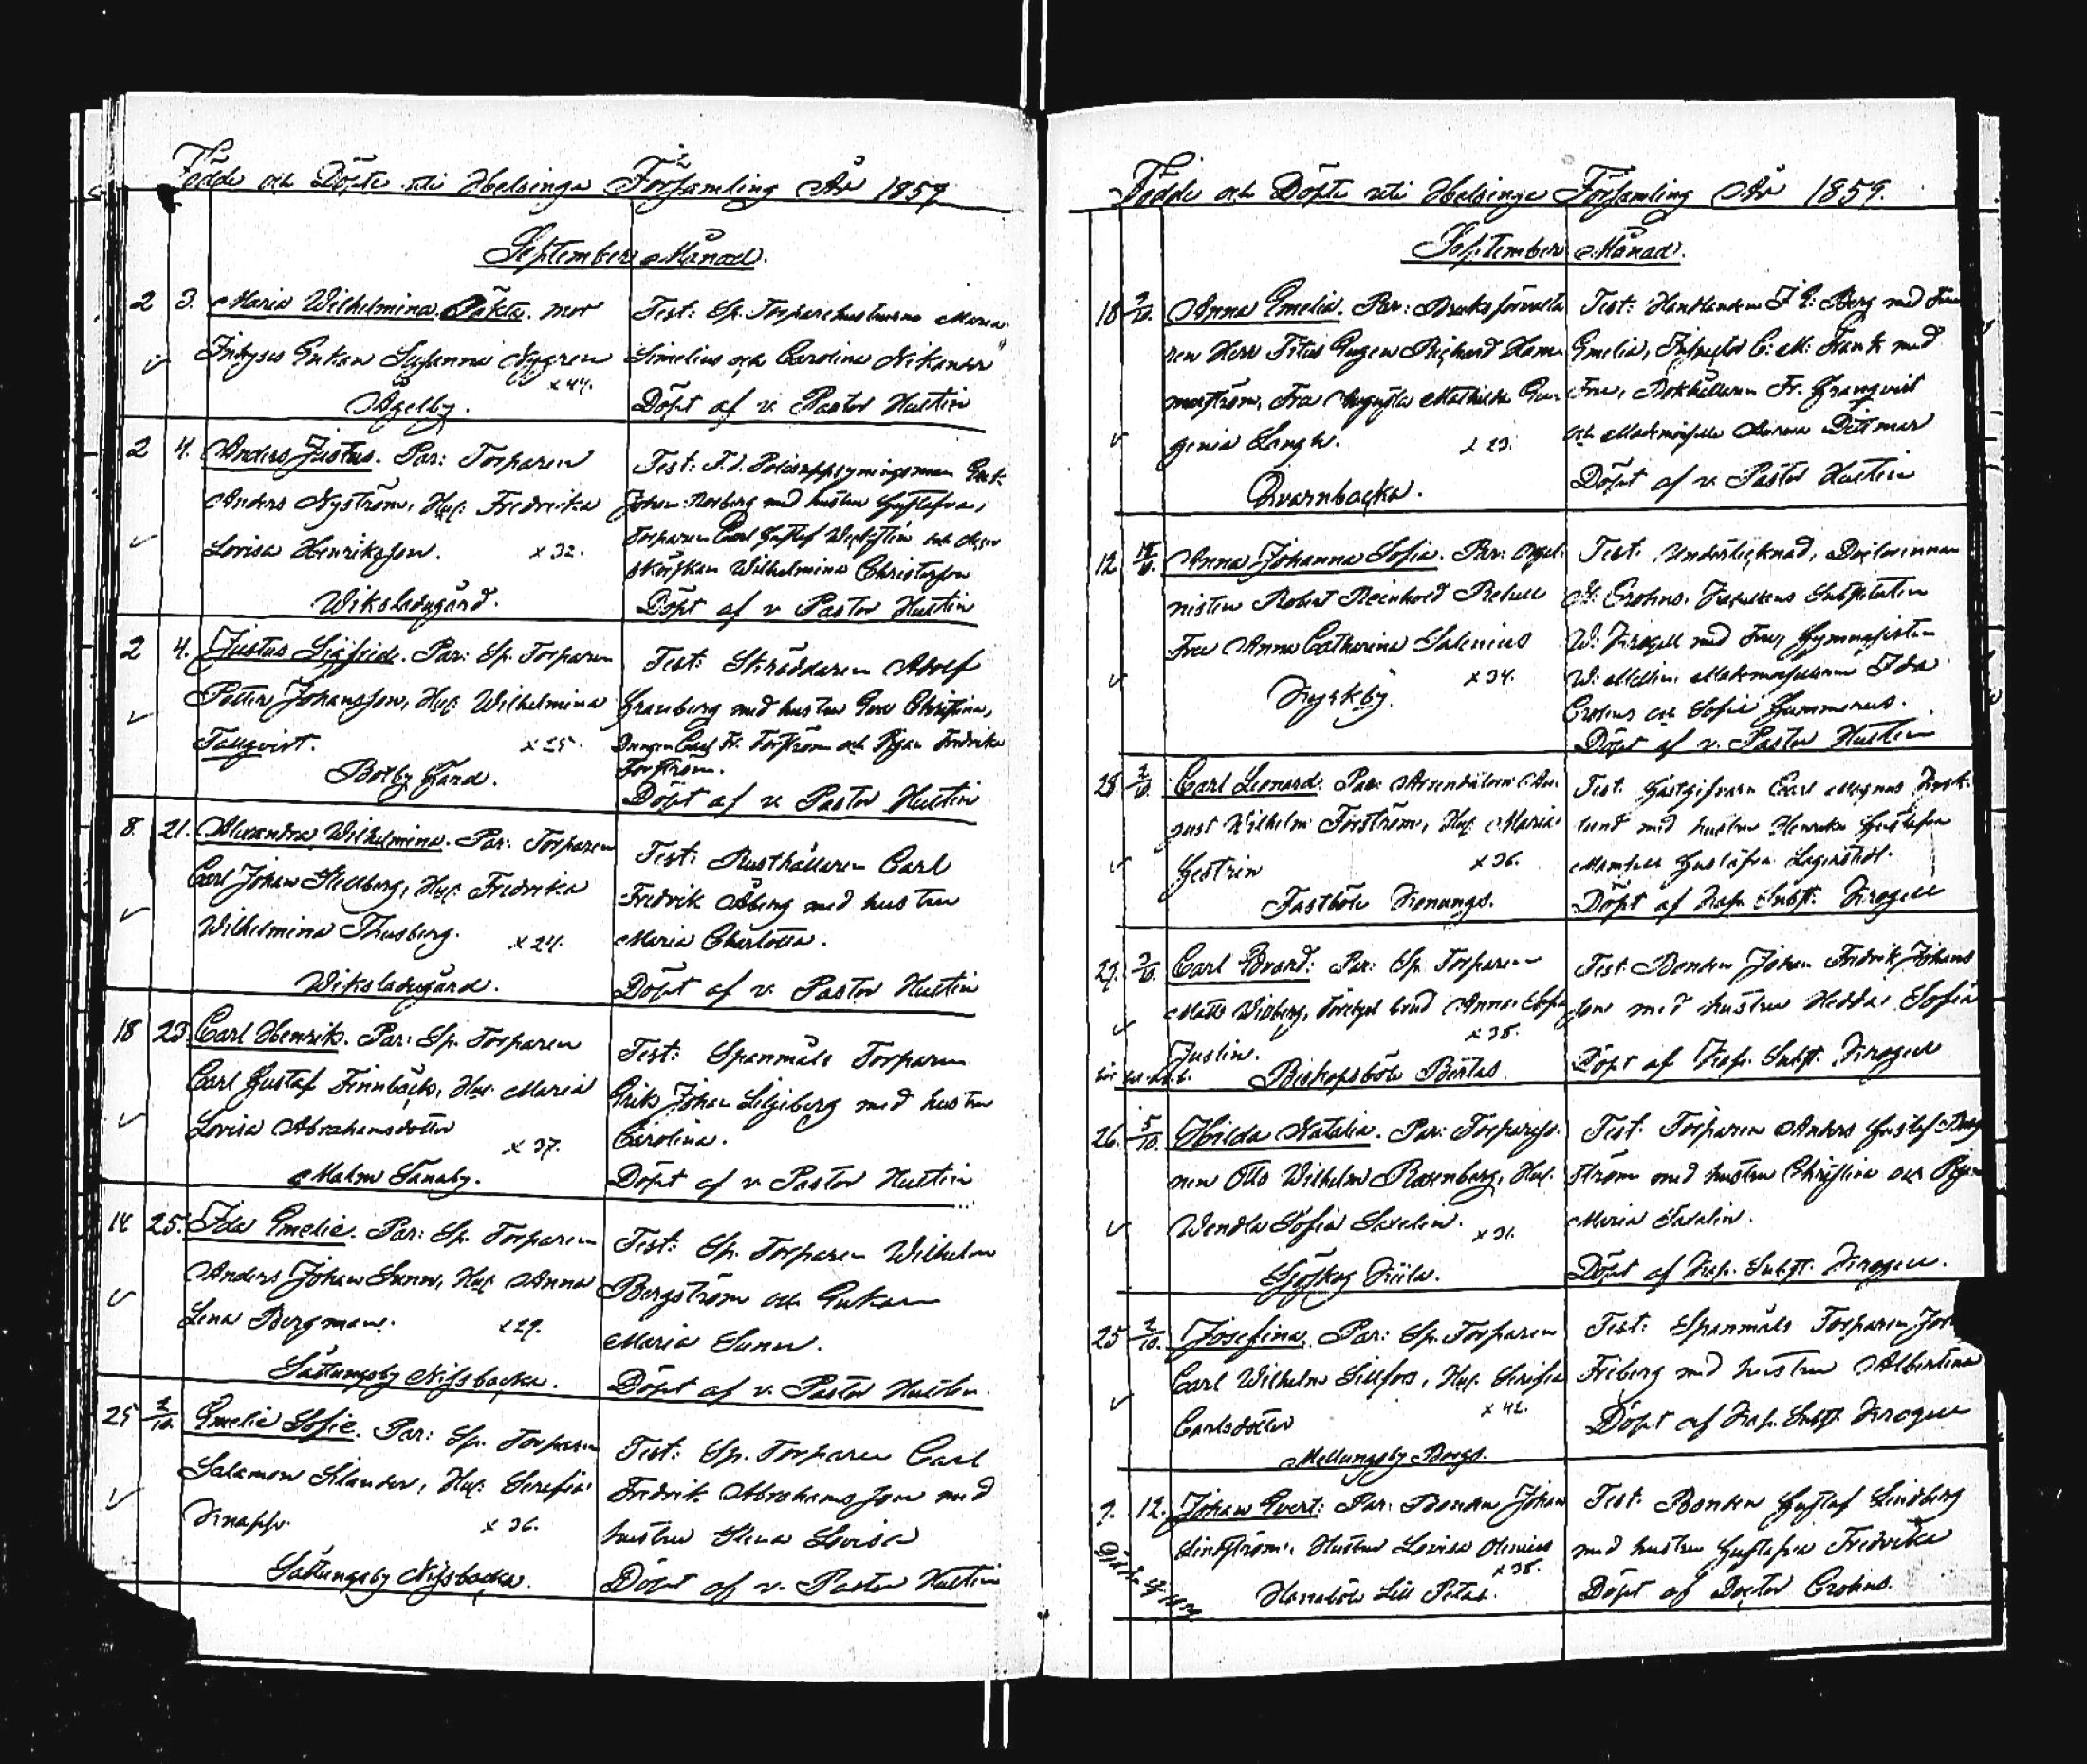 Födde och Döpte uti Helsinge Församling År 1859
September Månad.
2 3. Maria Wilhelmina. Oäkta. mor
Inhyses Enkan Susanna Nygren
x 44.
Ågelby.
Test: Sp. Torparehustrurna Maria
Simelius och Carolina Nikander
Döpt af v. Pastor Hultin
2 4. Anders Justus. Par: Torparen
Anders Nyström, Hus. Fredrika
Lovisa Henriksson. x 32.
Wiksladugård.
Test: T.f. Polisuppsyningsman
Johan Norberg med hustru Gustafva,
Torparen Carl Gustaf och
Wilhelmina Christersson
Döpt af v. Pastor Hultin
2 4. Justus Sigfrid. Par: Sp. Torparen
Petter Johansson, Hus. Wilhelmina
Tallqvist. x 25.
Botby Gård.
Test: Skräddaren Adolf
Granberg med hustru Eva Christina,
Drengen Carl Fr. Forsström och Pigan Fredrika
Forsström.
Döpt af v. Pastor Hultin
8. 21. Alexandra Wilhelmina. Par: Torparen
Carl Johan Stellberg, Hus. Fredrika
Wilhelmina Thusberg. x 24.
Wiksladugård.
Test: Rusthållaren Carl
Fredrik Åberg med hustru
Maria Charlotta.
Döpt af v. Pastor Hultin
18 23. Carl Henrik. Par: Sp. Torparen
Carl Gustaf Finnbäck, Hus. Maria
Lovisa Abrahamsdotter
x 37.
Malm Tanaby.
Test: Spanmåls Torparen
Erik Johan Liljeberg med hustru
Carolina.
Döpt af v. Pastor Hultin
14 25. Ida Emelie. Par: Sp. Torparen
Anders Johan Sunn, Hus. Anna
Lena Bergman. x 29.
Sottungsby Nissbacka.
Test: Sp. Torparen Wilhelm
Bergström och Enkan
Maria Sunn.
Döpt af v. Pastor Hultin
25 2/10. Emelie Sofie. Par: Sp. Torparen
Salamon Silander, Hus. Serafia
Knapp. x 36.
Sottungsby Nissbacka.
Test: Sp. Torparen Carl
Fredrik Abrahamsson med
hustru Lovisa
Döpt af v. Pastor Hultin
Födde och Döpte uti Helsinge Församling År 1859.
September Månad.
18 Anna Emelia. Par: Bruksförvalta
ren Herr Titus Eugen Richard Ham
marström, Fru Augusta Mathilda Eu
genia Langh. x 23.
Qvarnbacka.
Test: Handlanden J. E. Berg med Fru
Emelia, Inspector C. M. Frank med
Fru, Bokhållaren Fr. Granqvist
och Mademoiselle Aurora Dittmar
Döpt af v. Pastor Hultin
12 Anna Johanna Sofia. Par: Orga
nisten Robert Reinhold
Fru Anna Catharina Salenius
x 34.
Kyrkby.
Test. Undertecknad, Doctorinnan
Crohns. Kapellans Substituten
W. Krogell med Fru, Gymnasisten
W. Mellin, Mademoisellerna Ida
Crohns och Sofie Gummerus.
Döpt af v. Pastor Hultin
28. 2/10. Carl Leonard. Par: Arrendatorn Au
gust Wilhelm Forström, Hus. Maria
Gestrin x 36.
Fastböle Konungs.
Test. Gästgifvarn Carl Magnus
lund med hustru Henrika Gustafva
Mamsell Gustafva Lagerstedt.
Döpt af Kap. Subst. Krogell
29. 3/10. Carl Edvard: Par: Sp. Torparen
Matts Widberg, Anna Sofia
x 38.
Justin.
Biskopsböle Bertas.
Test. Bonden Johan Fredrik Johans
son med hustru Hedda Sofia
Döpt af Kap. Subst. Krogell
26. 5/10. Hilda Natalia. Par: Torpareso
nen Otto Wilhelm Rosenberg, Hus.
Wendla Sofia Saxelin. x 31.
Sjöskog
Test. Torparen Anders Gustaf Berg
ström med hustru Christina och Pigan
Maria Saxelin.
Döpt af Kap. Subst. Krogell.
25 2/10. Josefina. Par: Sp. Torparen
Carl Wilhelm Sillfors, Hus. Serafia
x 42.
Carlsdotter
Mellungsby Borgs.
Test: Spanmåls Torparen
Friberg med hustru Albertina
Döpt af Kap. Subst. Krogell
7. 12. Johan Evert: Par: Bonden Johan
Lindström, Hustru Lovisa
x 38.
Hanaböle Lill Petas.
Test. Bonden Gustaf Lindberg
med hustru Gustafva Fredrika
Döpt af Doctor Crohns.